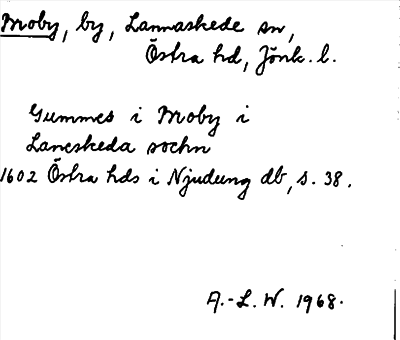 Moby, by, Lannaskede sn,
Östra hd, Jönk. l.
Gummes i Moby i
Laneskeda sochn
1602 Östra hds i Njudung db, s. 38.
A.-L. W. 1968.